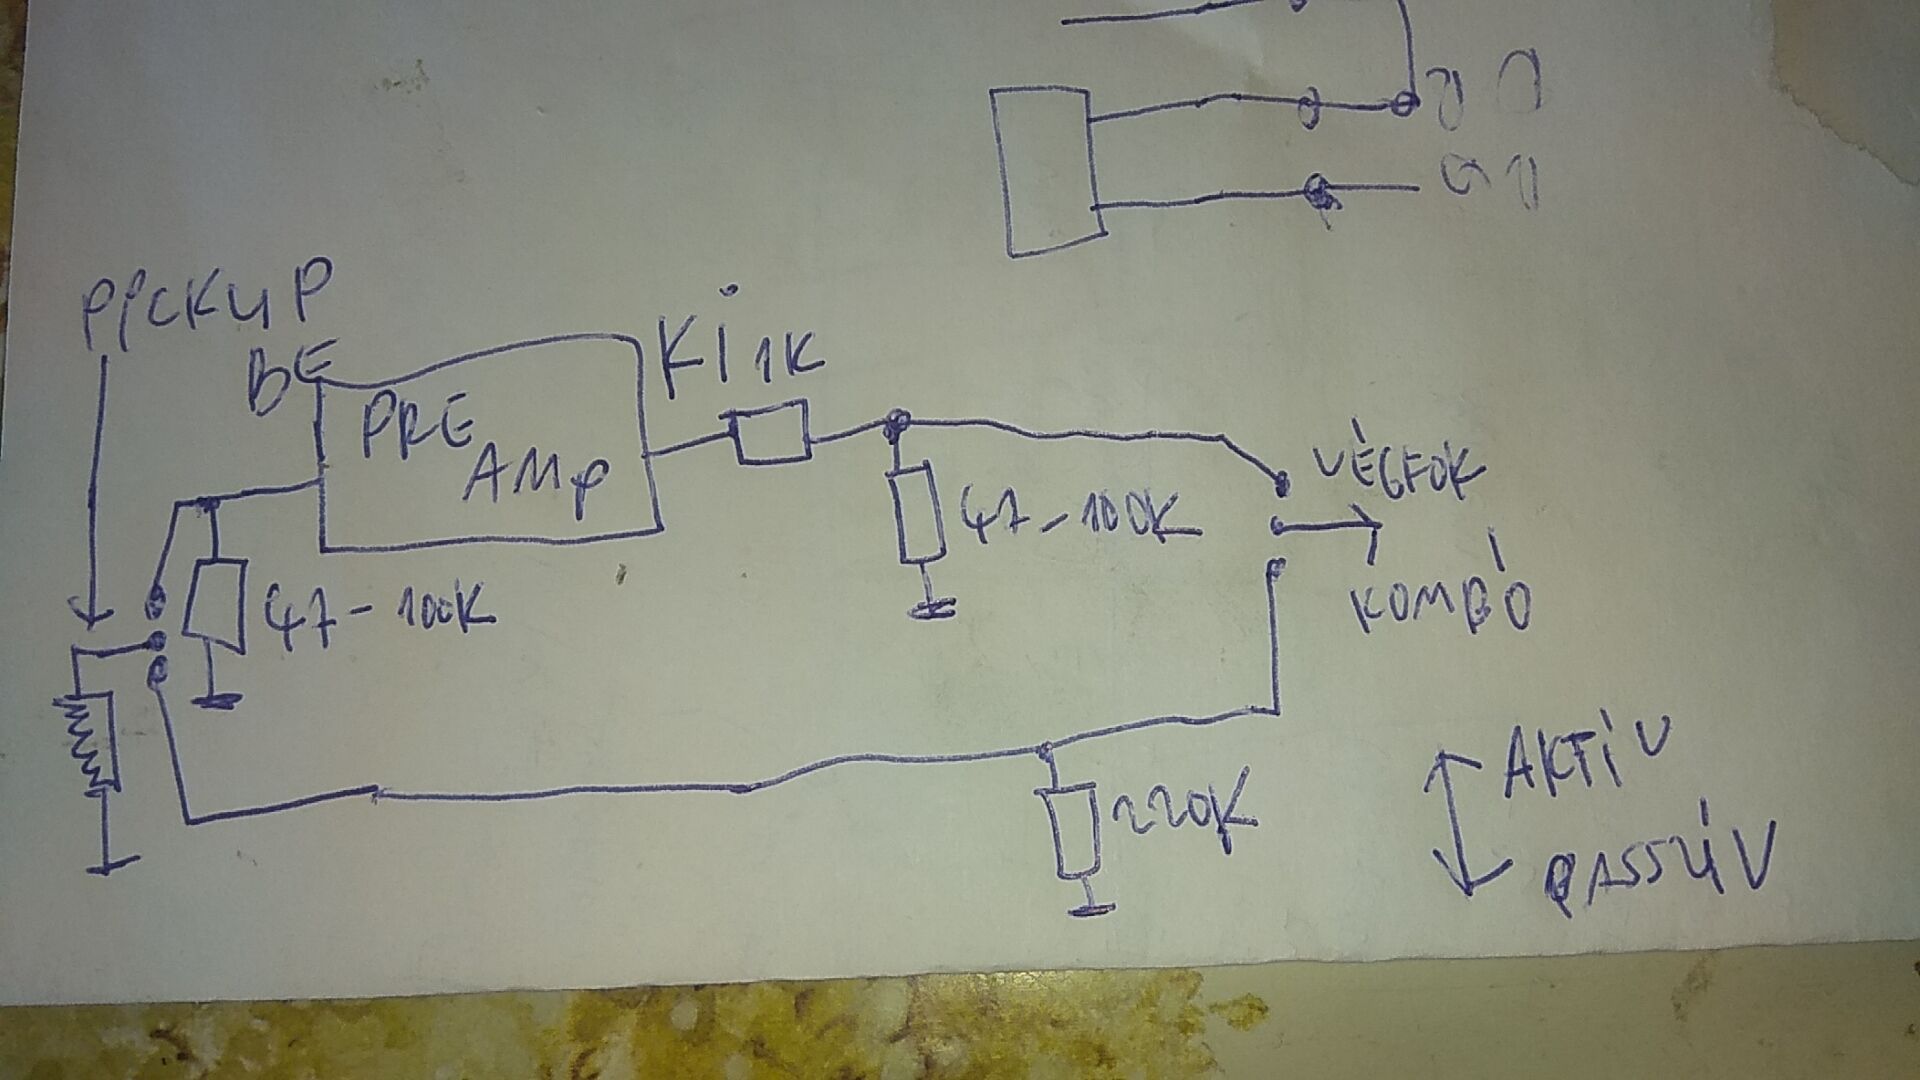 PICKUP
BE
PRE
AMP
Ki 1K
47-100K
47-100K
VÉGFOK
KOMBÓ
220K
AKTÍV
PASSZÍV